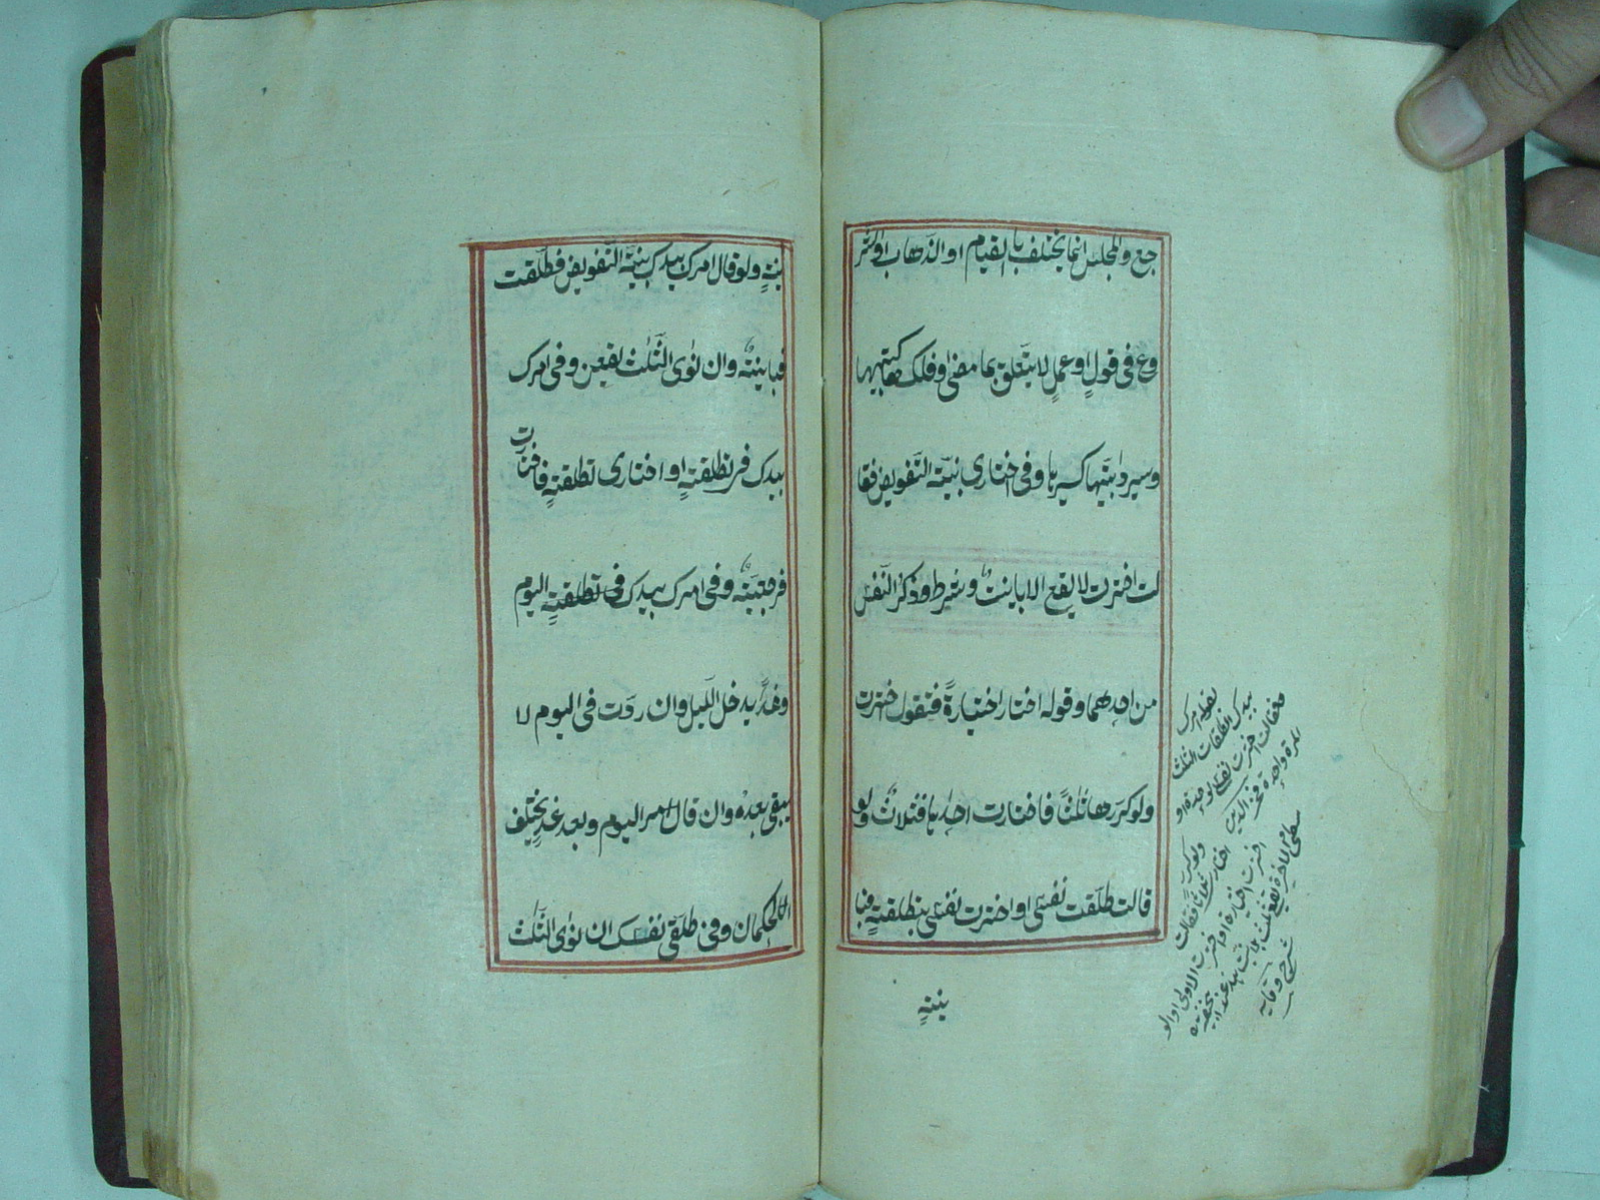 جع والمجلس انما يختلف بالقيام او الذهاب او الشر
وع فى قول او عمل لا يتعلق بما مضى وفلكها كبيتها
وسير دابتها كسيرها وفى اختارى بنية التفويض فقا
لت اخترت لا يقع الا باينة وشرط ذكر النفس
من احدهما وقوله اختار اختيارة فتقول اخترت
ولو كررها ثلثا فاختارت احديها فثلاث ولو
قالت طلقت نفسى او اخترت نفسى بتطليقة فبا
ينة
بقوله امرك
بيدك الطلقات الثلث
فقالت اخترت نفسى
ولو كرر ثلاثا فقالت
اخترت اختيارة او اخترت الاولى او الو
سطى او الاخيرة يقع ثلث
شرح وقايه
ينة ولو قال امرك بيدك بنية التفويض فطلقت
فباينة وان نوى الثلث يقعن وفى امرك
بيدك فى تطليقة او اختارى تطليقة فاختارت
فرجعية وفى امرك بيدك فى تطليقة اليوم
وغدا يدخل الليل وان ردت فى اليوم لا
يبقى بعده وان قال امر اليوم وبعد غد يختلف
الحكمان وفى طلقى نفسك ان نوى الثلث